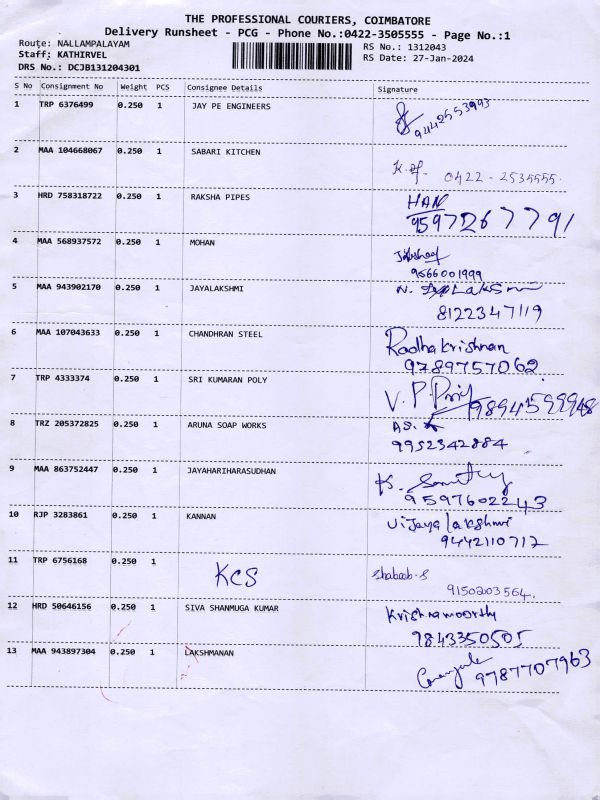 THE PROFESSIONAL COURIERS, COIMBATORE
Delivery Runsheet - PCG - Phone No.:0422-3505555 - Page No.:1
Route: NALLAMPALAYAM
RS No.: 1312043
Staff: KATHIRVEL
RS Date: 27-Jan-2024
DRS No.: DCJB131204301
S No Consignment No Weight PCS Consignee Details Signature
1 TRP 6376499 0.250 1 JAY PE ENGINEERS
9442553993
2 MAA 104668067 0.250 1 SABARI KITCHEN
0422 - 2535555.
3 HRD 758318722 0.250 1 RAKSHA PIPES HAN
9597267791
4 MAA 568937572 0.250 1 MOHAN
9566001999
5 MAA 943902170 0.250 1 JAYALAKSHMI
8122347119
6 MAA 107043633 0.250 1 CHANDHRAN STEEL Radhakrishnan
9789757062
7 TRP 4333374 0.250 1 SRI KUMARAN POLY V. P.
8 TRZ 205372825 0.250 1 ARUNA SOAP WORKS
9952342884
9 MAA 863752447 0.250 1 JAYAHARIHARASUDHAN K.
9597602243
10 RJP 3283861 0.250 1 KANNAN Vijaya lakshmi
9442110712
11 TRP 6756168 0.250 1 KCS Shabeeb.S
9150203564.
12 HRD 50646156 0.250 1 SIVA SHANMUGA KUMAR Krishnamoorthy
9843350505
13 MAA 943897304 0.250 1 LAKSHMANAN
9787707963